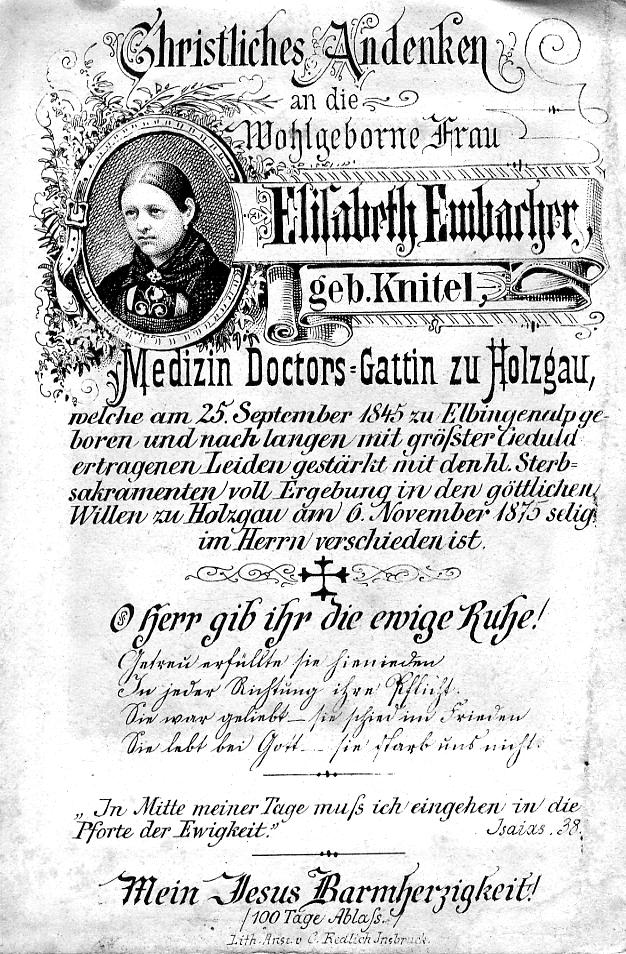 Christliches Andenken
an die
Wohlgeborne Frau
Eliſabeth Embacher,
geb. Knitel,
Medizin Doctors=Gattin zu Holzgau,
welche am 25. September 1845 zu Elbingenalp ge-
boren und nach langen mit gröſster Geduld
ertragenen Leiden gestärkt mit den hl. Sterb-
sakramenten voll Ergebung in den göttlichen
Willen zu Holzgau am 6. November 1875 selig
im Herrn verschieden ist.
O Herr gib ihr die ewige Ruhe!
Getreu erfüllte sie hienieden
In jeder Richtung ihre Pflicht.
Sie war geliebt – sie schied im Frieden
Sie lebt bei Gott – sie ſtarb uns nicht.
„In Mitte meiner Tage muſs ich eingehen in die
Pforte der Ewigkeit.”
Isaias. 38.
Mein Jesus Barmherzigkeit!
/100 Tage Ablaſs./
Lith. Anst. v C. Redlich Innsbruck.